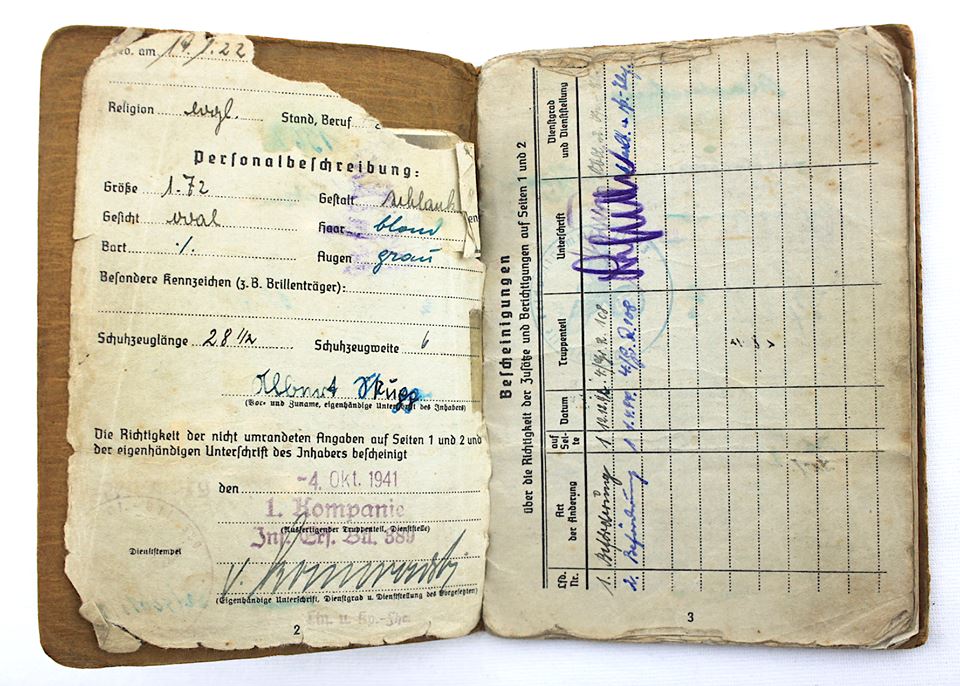 geb. am 19.1.22
Religion evgl. Stand, Beruf
Personalbeschreibung:
Größe 1.72 Gestalt schlank
Gesicht oval Haar blond
Bart ./. Augen grau
Besondere Kennzeichen (z. B. Brillenträger):
Schuhzeuglänge 28 1/2 Schuhzeugweite 6
Albert
(Vor- und Zuname, eigenhändige Unterschrift des Inhabers)
Die Richtigkeit der nicht umrandeten Angaben auf Seiten 1 und 2 und
der eigenhändigen Unterschrift des Inhabers bescheinigt
den -4. Okt. 1941
1. Kompanie
(Ausfertigender Truppenteil, Dienststelle)
Inf. Ers. Btl. 389
Dienststempel
(Eigenhändige Unterschrift, Dienstgrad u. Dienststellung des Vorgesetzten)
Ltn. u. Kp.-Fhr.
2
Bescheinigungen
über die Richtigkeit der Zusätze und Berichtigungen auf Seiten 1 und 2
Lfd. Nr. Art der Änderung auf Seite Datum Truppenteil Unterschrift Dienstgrad und Dienststellung
1. Beförderung 1
2. Beförderung 1
3